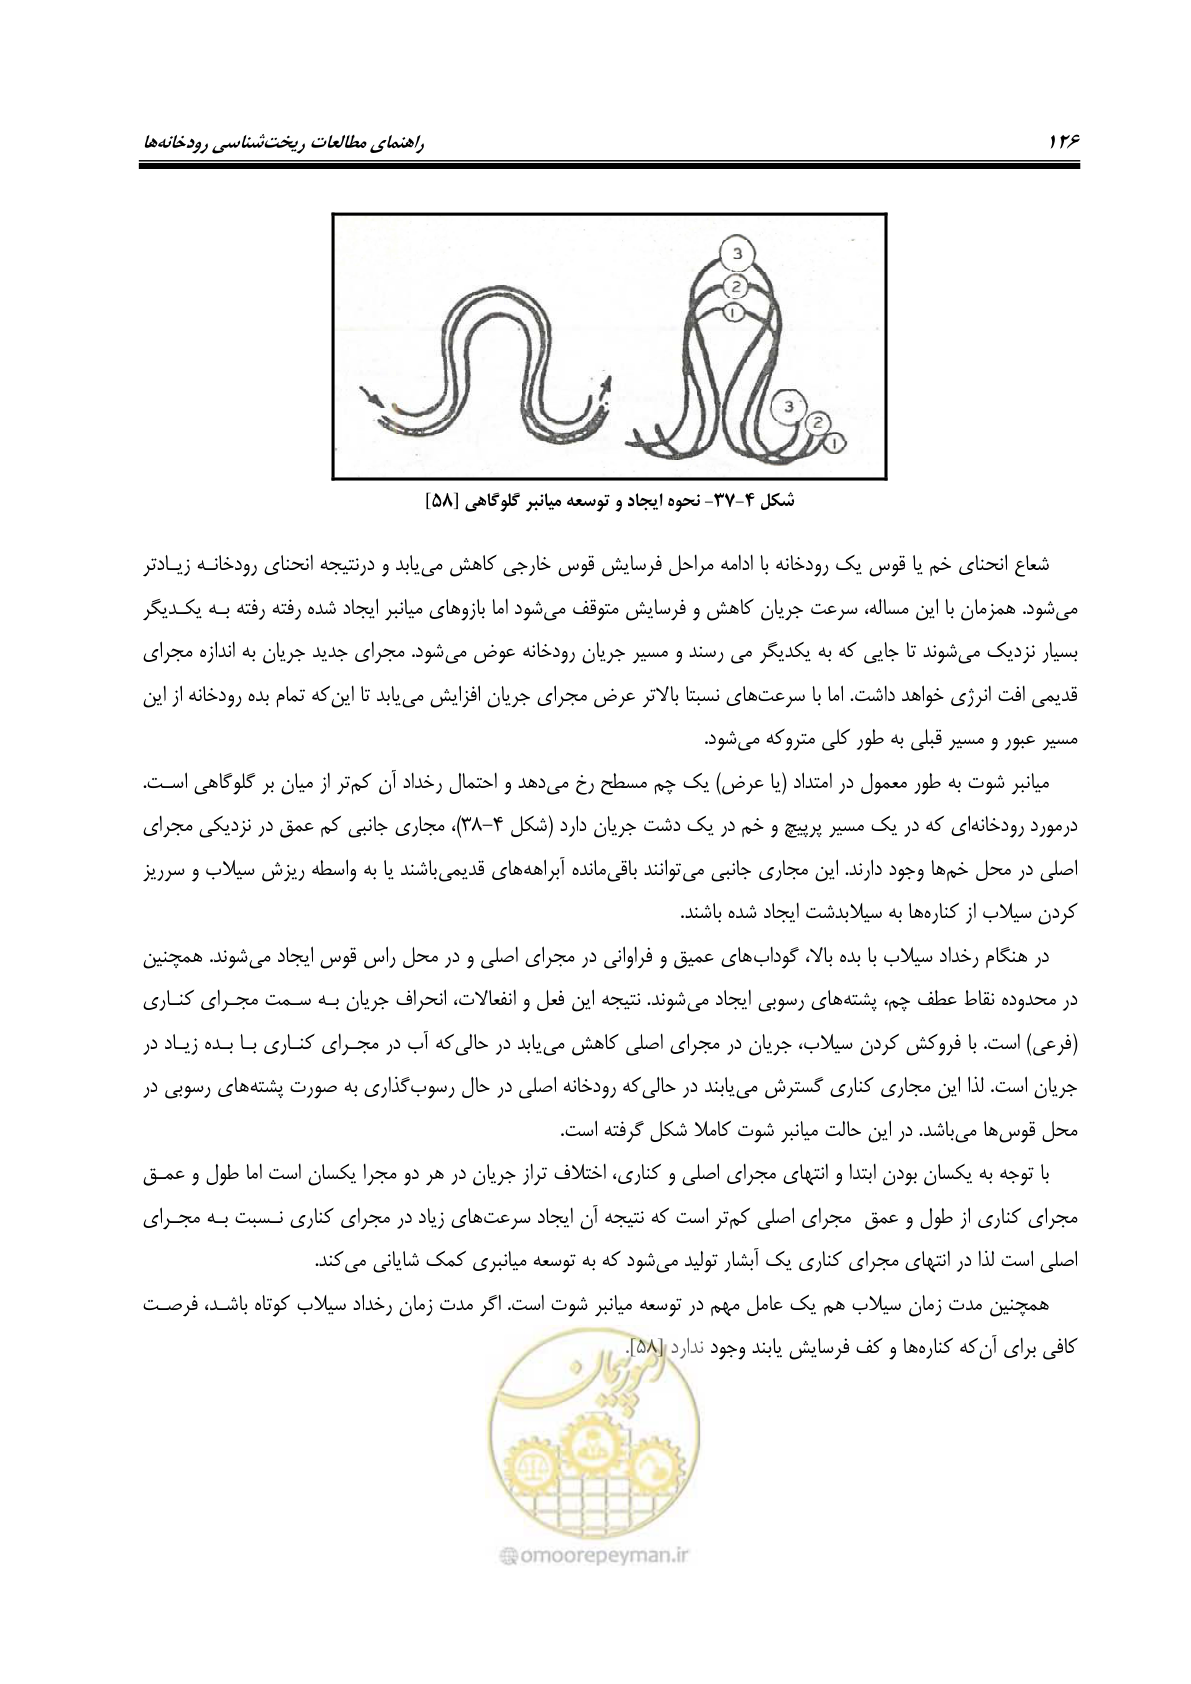 ۱۲۶
راهنمای مطالعات ریخت‌شناسی رودخانه‌ها
3
2
1
3
2
1
شکل ۴-۳۷- نحوه ایجاد و توسعه میانبر گلوگاهی [۵۸]
شعاع انحنای خم یا قوس یک رودخانه با ادامه مراحل فرسایش قوس خارجی کاهش می‌یابد و درنتیجه انحنای رودخانـه زیـادتر
می‌شود. همزمان با این مساله، سرعت جریان کاهش و فرسایش متوقف می‌شود اما بازوهای میانبر ایجاد شده رفته رفته بـه یکـدیگر
بسیار نزدیک می‌شوند تا جایی که به یکدیگر می رسند و مسیر جریان رودخانه عوض می‌شود. مجرای جدید جریان به اندازه مجرای
قدیمی افت انرژی خواهد داشت. اما با سرعت‌های نسبتا بالاتر عرض مجرای جریان افزایش می‌یابد تا این‌که تمام بده رودخانه از این
مسیر عبور و مسیر قبلی به طور کلی متروکه می‌شود.
میانبر شوت به طور معمول در امتداد (یا عرض) یک چم مسطح رخ می‌دهد و احتمال رخداد آن کم‌تر از میان بر گلوگاهی اسـت.
درمورد رودخانه‌ای که در یک مسیر پرپیچ و خم در یک دشت جریان دارد (شکل ۴-۳۸)، مجاری جانبی کم عمق در نزدیکی مجرای
اصلی در محل خم‌ها وجود دارند. این مجاری جانبی می‌توانند باقی‌مانده آبراهه‌های قدیمی‌باشند یا به واسطه ریزش سیلاب و سرریز
کردن سیلاب از کناره‌ها به سیلابدشت ایجاد شده باشند.
در هنگام رخداد سیلاب با بده بالا، گوداب‌های عمیق و فراوانی در مجرای اصلی و در محل راس قوس ایجاد می‌شوند. همچنین
در محدوده نقاط عطف چم، پشته‌های رسوبی ایجاد می‌شوند. نتیجه این فعل و انفعالات، انحراف جریان بـه سـمت مجـرای کنـاری
(فرعی) است. با فروکش کردن سیلاب، جریان در مجرای اصلی کاهش می‌یابد در حالی‌که آب در مجـرای کنـاری بـا بـده زیـاد در
جریان است. لذا این مجاری کناری گسترش می‌یابند در حالی‌که رودخانه اصلی در حال رسوب‌گذاری به صورت پشته‌های رسوبی در
محل قوس‌ها می‌باشد. در این حالت میانبر شوت کاملا شکل گرفته است.
با توجه به یکسان بودن ابتدا و انتهای مجرای اصلی و کناری، اختلاف تراز جریان در هر دو مجرا یکسان است اما طول و عمـق
مجرای کناری از طول و عمق مجرای اصلی کم‌تر است که نتیجه آن ایجاد سرعت‌های زیاد در مجرای کناری نـسبت بـه مجـرای
اصلی است لذا در انتهای مجرای کناری یک آبشار تولید می‌شود که به توسعه میانبری کمک شایانی می‌کند.
همچنین مدت زمان سیلاب هم یک عامل مهم در توسعه میانبر شوت است. اگر مدت زمان رخداد سیلاب کوتاه باشـد، فرصـت
کافی برای آن‌که کناره‌ها و کف فرسایش یابند وجود ندارد [۵۸].
امور پیمان
@omoorepeyman.ir